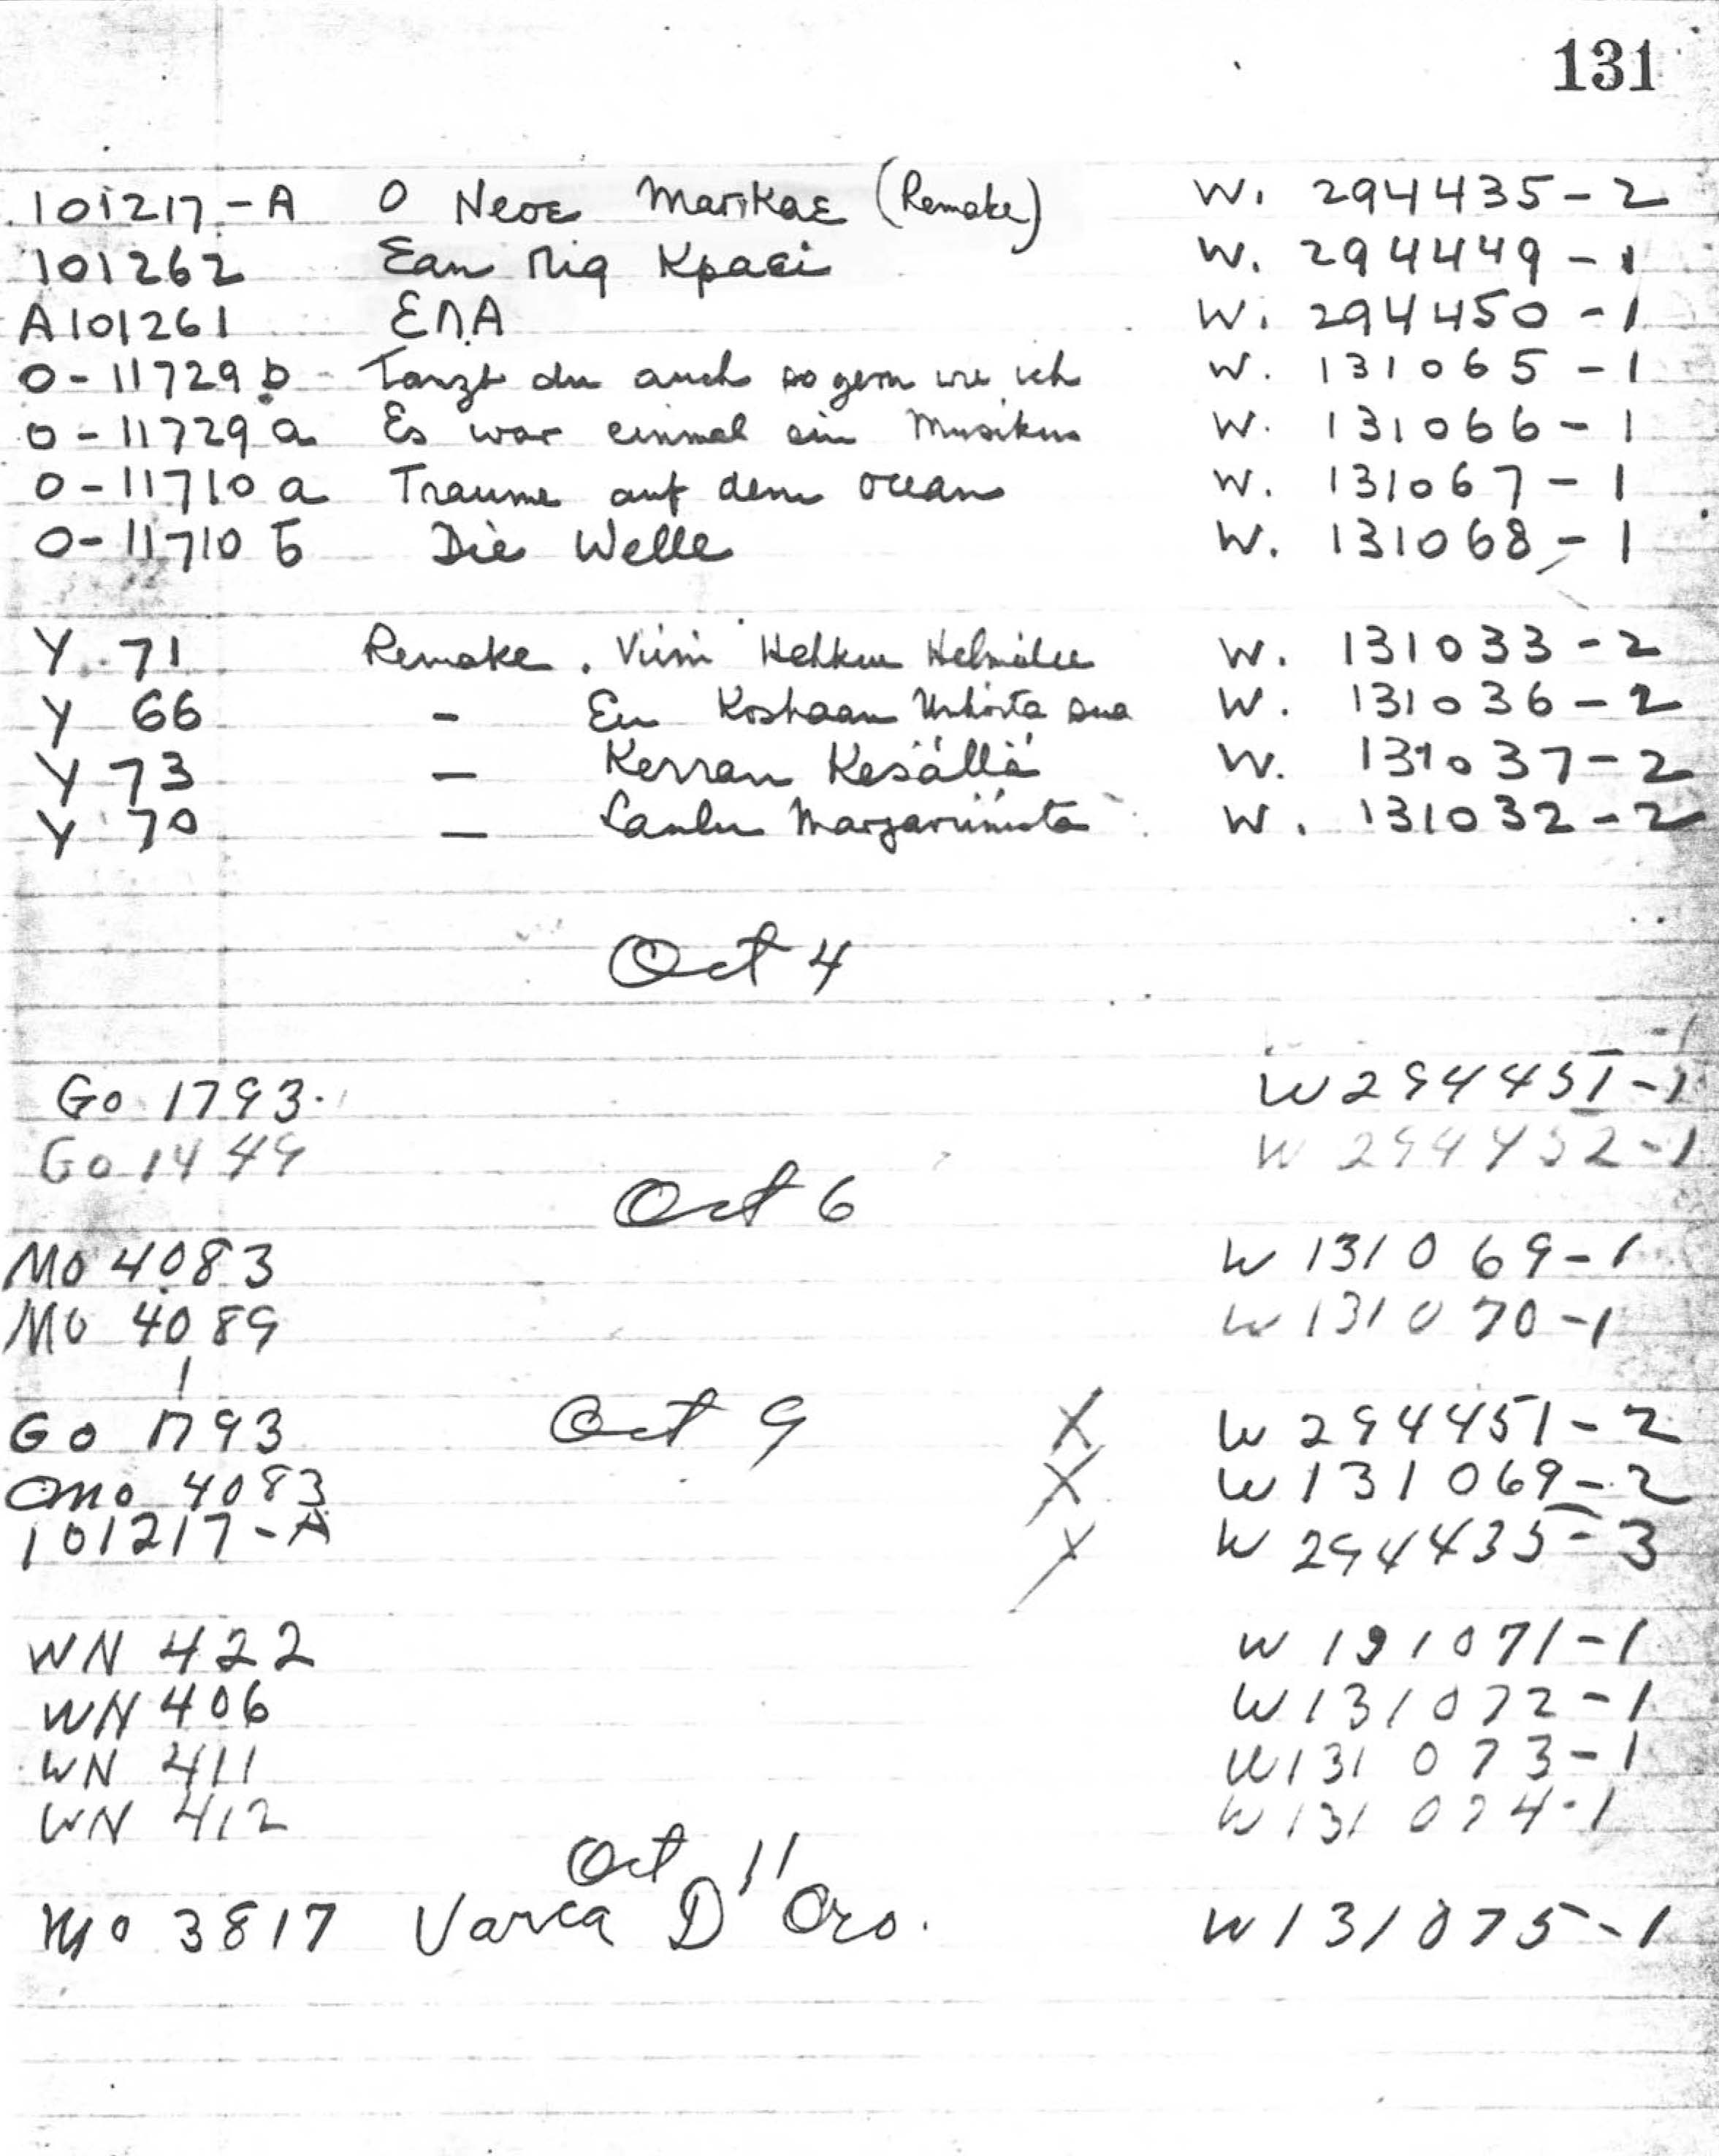 131
101217-A O Νεοε Marikaε (Remake) W. 294435-2
101262 Εαν Πιη Κραεi W. 294449-1
A101261 ΕΛΑ W. 294450-1
O-11729 b Tanzt du auch so gern wie ich W. 131065-1
O-11729 a Es war einmal ein Musikus W. 131066-1
O-11710 a Traume auf dem ocean W. 131067-1
O-11710 b Die Welle W. 131068-1
Y 71 Remake. Viini W. 131033-2
Y 66 - En Koskaan sua W. 131036-2
Y 73 - Kerran Kesällä W. 131037-2
Y 70 - Laulu W. 131032-2
Oct 4
-1
Go 1793. W 294451-1
Go 1449 W 294452-1
Oct 6
Mo 4083 W 131069-1
Mo 4089 W 131070-1
Go 1793 Oct 9 X W 294451-2
Mo 4083 X W 131069-2
101217-A X W 294435-3
WN 422 W 131071-1
WN 406 W 131072-1
WN 411 W 131073-1
WN 412 W 131074-1
Oct 11
Mo 3817 Varca D'Oro. W 131075-1